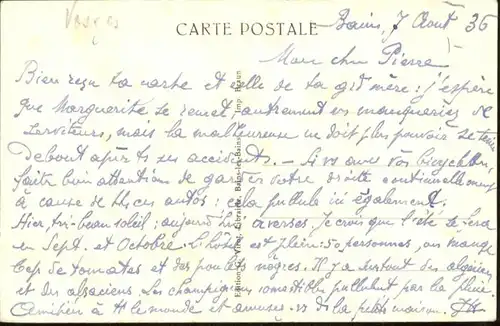 Vosges
CARTE POSTALE
Bains, 7 Août 36
Mon cher Pierre
Bien reçu ta carte et celle de ta gd mère : j'espère
que Marguerite se remet autrement vs manqueriez de
serviteurs, mais la malheureuse ne doit plus pouvoir se tenir
debout après ts ses accidents. - Si vs avez vos bicyclettes
faites bien attention de garder votre droite continuellement
à cause de ts ces autos : cela pullule ici également.
Hier, tr. beau soleil : aujourd'hui averses. Je crois que l'été sera
en Sept. et Octobre. L'hôtel est plein : 50 personnes, on mange
bcp de tomates et des poulets maigres. Il y a surtout des
et des alsaciens. Les champignons comestibles pullulent par la pluie
Amitiés à tt le monde et amusez-vs ds la petite maison.